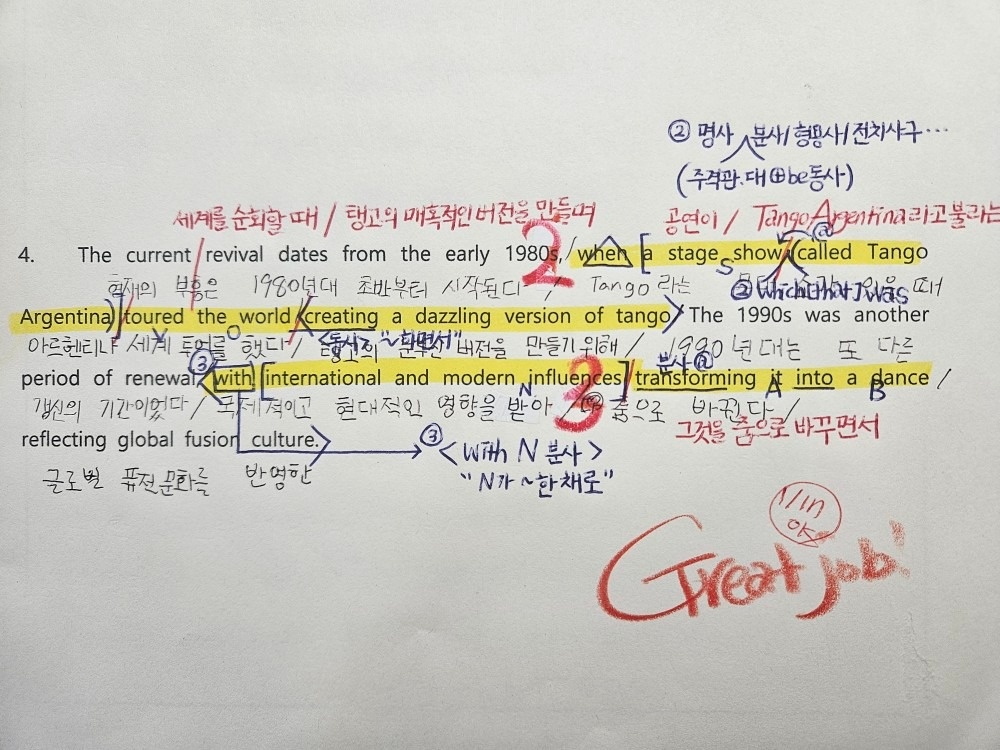 ② 명사 분사/형용사/전치사구…
(주격관.대⊕be동사)
세계를 순회할 때 / 탱고의 매혹적인 버전을 만들며 공연이 / Tango Argentina라고 불리는
4. The current revival dates from the early 1980s, / when [a stage show (called Tango
2 S ②
현재의 부흥은 1980년대 초반부터 시작된다 / Tango 라는 때
Argentina)] toured the world <creating a dazzling version of tango> The 1990s was another
V O <동시> "~하면서"
아르헨티나 세계 투어를 했다 / 버전을 만들기 위해 / 1990년대는 또 다른
③ 분사ⓐ
period of renewal, <with [international and modern influences] transforming it into a dance /
N 3 A B
갱신의 기간이었다 / 국제적이고 현대적인 영향을 받아 춤으로 바뀐다 /
그것을 춤으로 바꾸면서
reflecting global fusion culture.>
③ <with N 분사>
글로벌 퓨전 문화를 반영한
"N가 ~한 채로"
Great job!